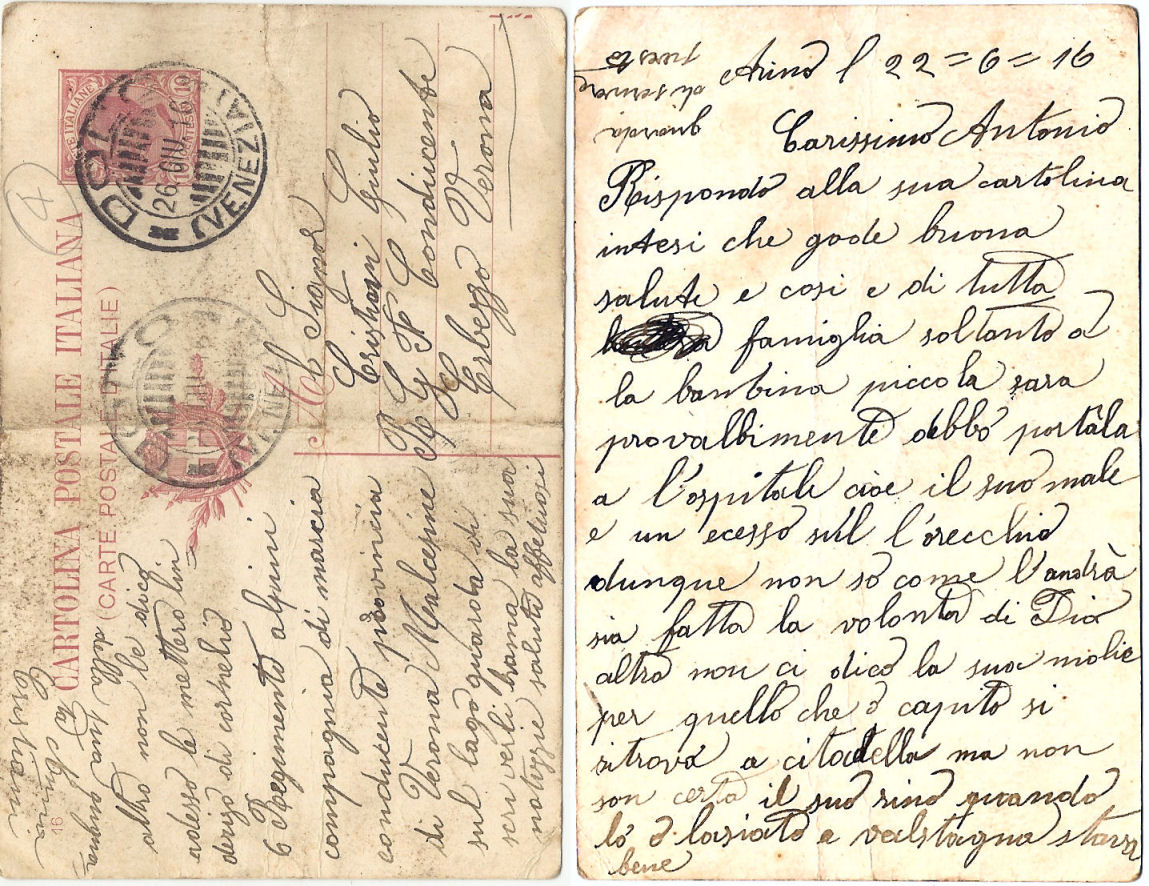 CARTOLINA POSTALE ITALIANA
(CARTE POSTALE D'ITALIE)
POSTE ITALIANE
10
DOLO
(VENEZIA)
26 GIU 16
DOLO
A
Al Signor
Cristiani Giulio
Condicente
Erbezzo Vr
Verona
altro non le dico
adesso le mettero lin
derizo di cornelio
6 Regimento alpini
compagnia di marcia
conducente provincia
di Verona Malcesine
sul lago guarda di
scriverli brama la sua
notizzie saluti affettuosi
della sua
Cristiani
16
Arino l 22=6=16
Carissimo Antonio
Rispondo alla sua cartolina
intesi che gode buona
salute e cosi e di tutta
famiglia soltanto a
la bambina piccola sara
provalbimente debbo portàla
a l'ospitale cioe il suo male
e un ecesso sul l'orecchio
dunque non so come l'andrà
sia fatta la volontà di Dio
altro non ci dico la sua molie
per quello che ò capito si
ritrova a citadella ma non
son certa il suo quando
lo ò lasiato a valstagna stava
bene